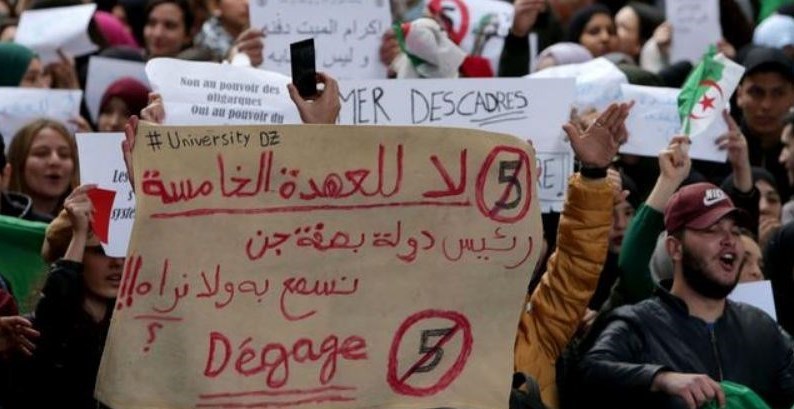 إكرام الميت دفنه
و ليس
Non au pouvoir des
oligarques
Oui au pouvoir du
MER DES CADRES
RE!
# University DZ
لا للعهدة الخامسة 5
رئيس دولة بصفة جن
نسمع به ولا نراه!!!
؟
Dégage 5
Les
s
syste
NIKE